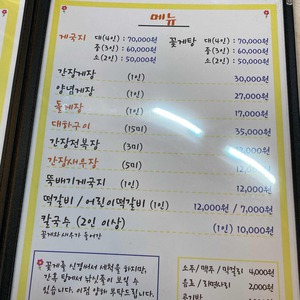 메뉴
게국지 대(4인) : 70,000원 꽃게탕 대(4인) : 70,000원
중(3인) : 60,000원 중(3인) : 60,000원
소(2인) : 50,000원 소(2인) : 50,000원
간장게장 (1인) 30,000원
양념게장 (1인) 27,000원
돌게장 (1인) 17,000원
대하구이 (15미) 35,000원
간장전복장 (3미) 12,000원
간장새우장 (5미) 12,000원
뚝배기게국지 (1인) 12,000원
떡갈비 / 어린이떡갈비 (1인) 12,000원 / 7,000원
칼국수 (2인 이상) (1인) 10,000원
꽃게와새우가 들어간
꽃게를 신경써서 세척을 하지만,
간혹 탕에서 낚싯줄이 보일 수
있습니다. 이점 양해 부탁드립니다.
소주 / 맥주 / 막걸리 4,000
음료 / 라면사리 2,000
공기밥